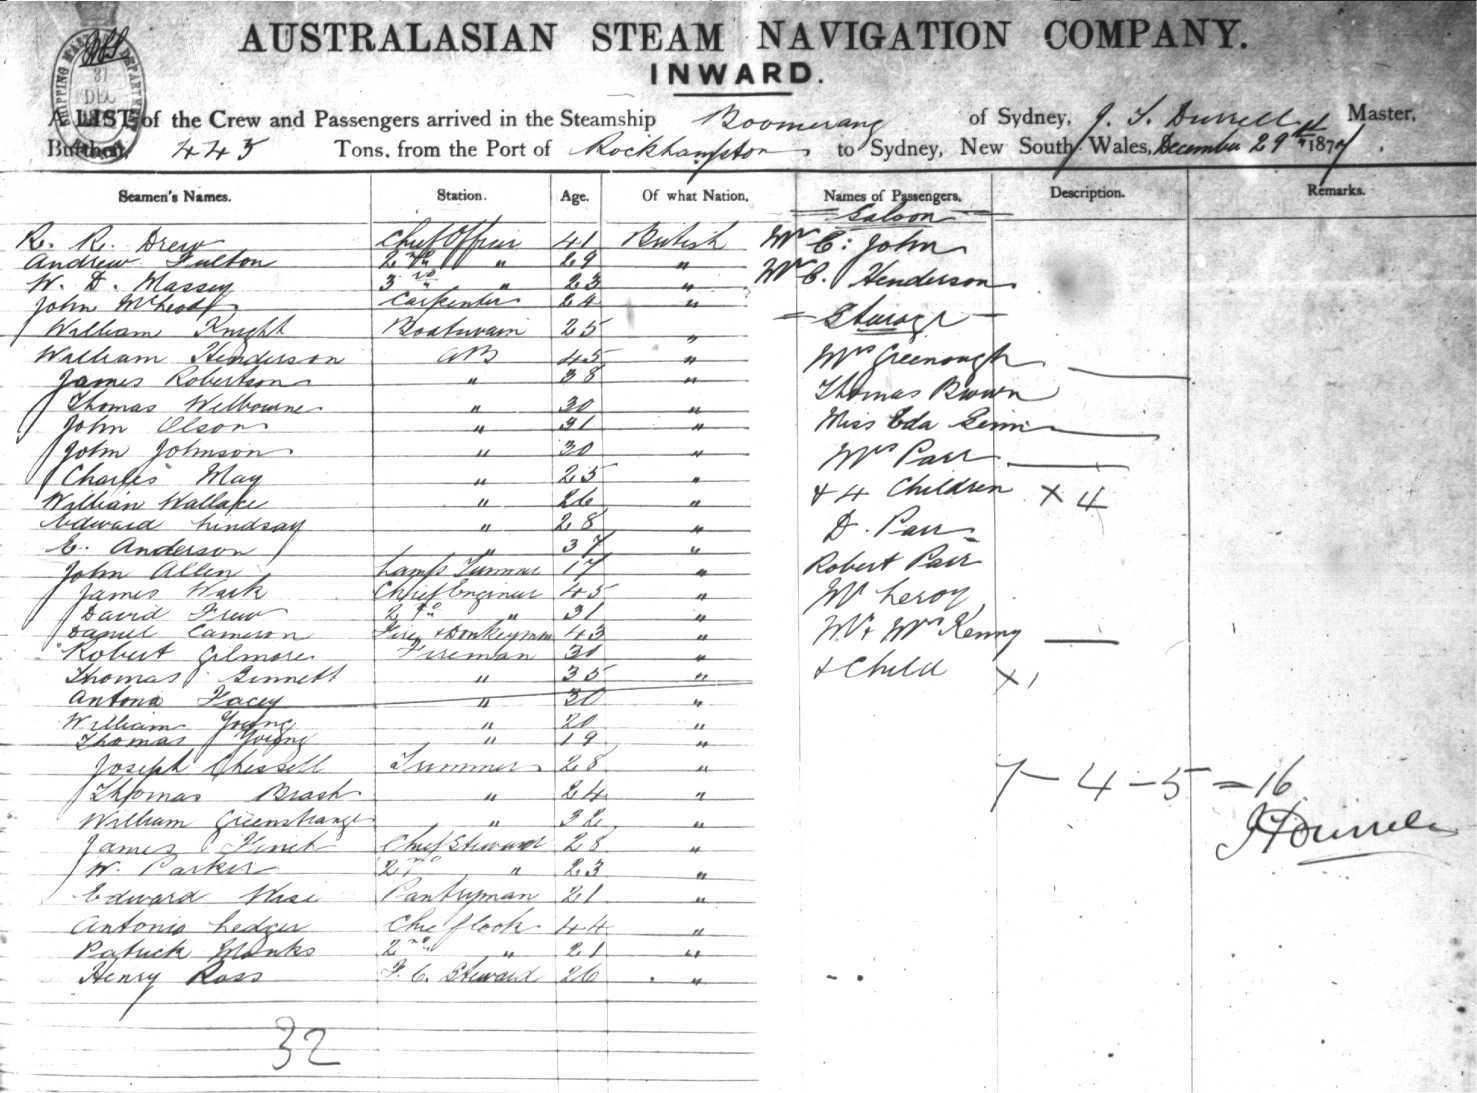 AUSTRALASIAN STEAM NAVIGATION COMPANY.
INWARD.
SHIPPING MASTER'S DEPARTMENT
31
DEC
A LIST of the Crew and Passengers arrived in the Steamship Boomerang of Sydney, J. T. Durrell Master,
Burthen, 443 Tons, from the Port of Rockhampton to Sydney, New South Wales, December 29th 1877.
Seamen's Names. Station. Age. Of what Nation. Names of Passengers. Description. Remarks.
Saloon
R. R. Drew Chief Officer 41 British Mr C. John
Andrew Fulton 2nd " 29 "
W. D. Massey 3rd " 23 " Mr C. Henderson
John McLeod Carpenter 24 "
William Knight Boatswain 25 " Steerage
William Henderson AB 45 " Mrs Greenough
James Robertson " 38 "
Thomas Welbourne " 30 " Thomas Brown
John Olson " 31 " Miss Eda
John Johnson " 30 " Mrs Parr
Charles May " 25 "
William Wallace " 26 " + 4 Children X 4
Edward Lindsay " 28 " D. Parr
E. Anderson " 37 "
John Allen Lamp Trimmer 17 " Robert Parr
James Wark Chief Engineer 45 " Mr Leroy
David Frew 2nd " 31 "
Daniel Cameron Fire & Donkeyman 43 " Mr & Mrs Kenny
Robert Gilmore Fireman 30 "
Thomas Sinnett " 35 " & Child X 1
Antona Facey " 30 "
William Young " 20 "
Thomas Young " 19 "
Joseph Chessell Trimmer 28 "
7 - 4 - 5 = 16
Thomas Brash " 24 "
William " 32 "
J T Durrell
James Finch Chief Steward 28 "
W. Parker 2nd " 23 "
Edward Wise Pantryman 21 "
Antonio Ledger Chief Cook 44 "
Patrick Monks 2nd " 21 "
Henry Ross F. C. Steward 26 "
32